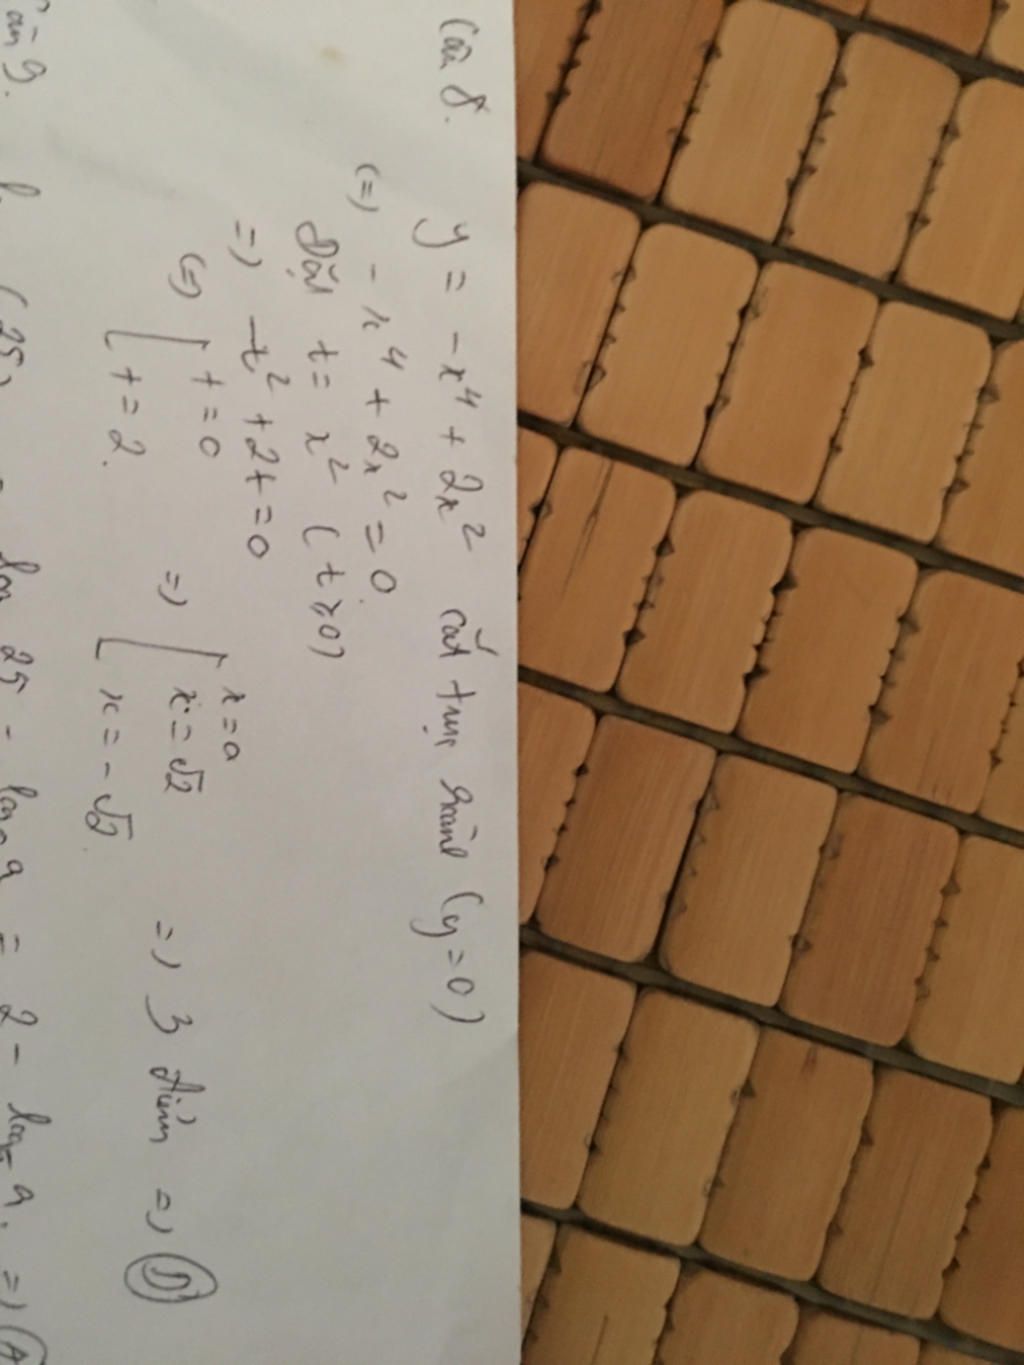 Câu 8.
y = -x⁴ + 2x² cắt trục hoành (y=0)
(=) -x⁴ + 2x² = 0.
Đặt t = x² (t ≥ 0)
=) -t² + 2t = 0
(=) [ t = 0 =) [ x = 0
t = 2. x = √2 =) 3 điểm =) D
x = -√2.
Câu 9. (25) 25 - log 9 = 2 - log 9. =) A